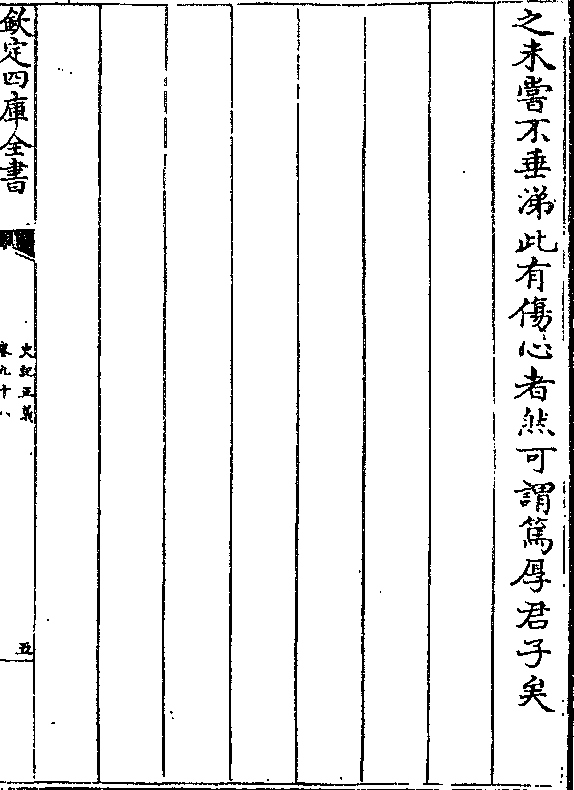 之未嘗不垂涕此有傷心者然可謂篤厚君子矣
欽定四庫全書
史記正義
卷九十八
五